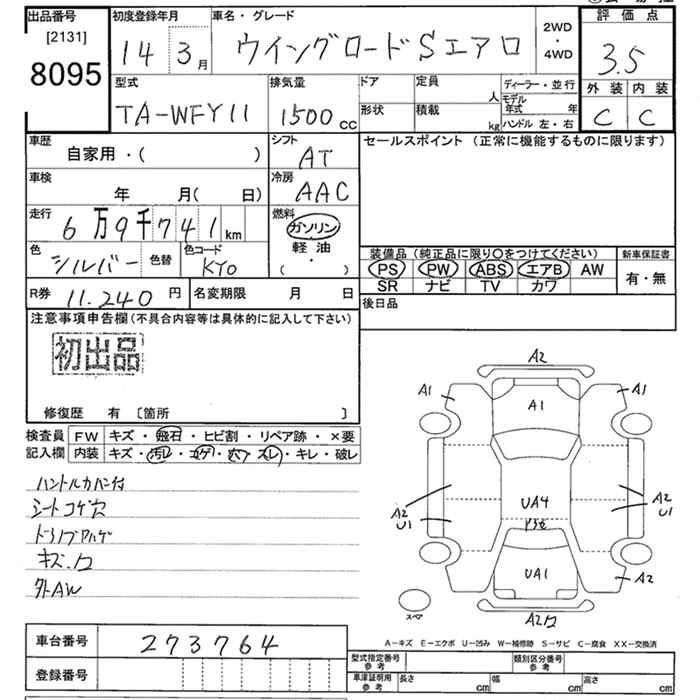 出品番号
[2131]
8095
初度登録年月
14 3月
車名・グレード
ウイングロードSエアロ
2WD
・
4WD
評価点
3.5
外装 内装
C C
型式
TA-WFY11
排気量
1500 cc
ドア
形状
定員
人
積載
kg
ディーラー・並行
モデル
年式 年
ハンドル 左・右
車歴
自家用・( )
シフト
AT
車検
年 月( 日)
冷房
AAC
走行
6万9千741km
燃料
ガソリン
軽油
( ・ )
色
シルバー
色替
色コード
KY0
R券 11.240 円
名変期限 月 日
セールスポイント(正常に機能するものに限ります)
装備品(純正品に限り○をつけてください)
PS PW ABS エアB AW
SR ナビ TV カワ
新車保証書
有・無
後日品
注意事項申告欄(不具合内容等は具体的に記入して下さい)
初出品
修復歴 有 [箇所 ]
検査員
記入欄
FW キズ・飛石・ヒビ割・リペア跡・×要
内装 キズ・汚レ・コゲ・穴・スレ・キレ・破レ
ハンドルカバー付
シートコゲ穴
キズ.ワ
外AW
車台番号 273764
登録番号
A2
A1 A1
A1
A2
U1
UA4
A2
U1
UA1
A2
A2ワ
スペア
A-キズ E-エクボ U-凹み W-補修跡 S-サビ C-腐食 XX-交換済
型式指定番号
参考
類別区分番号
参考
車庫証明用
参考
長さ cm 幅 cm 高さ cm